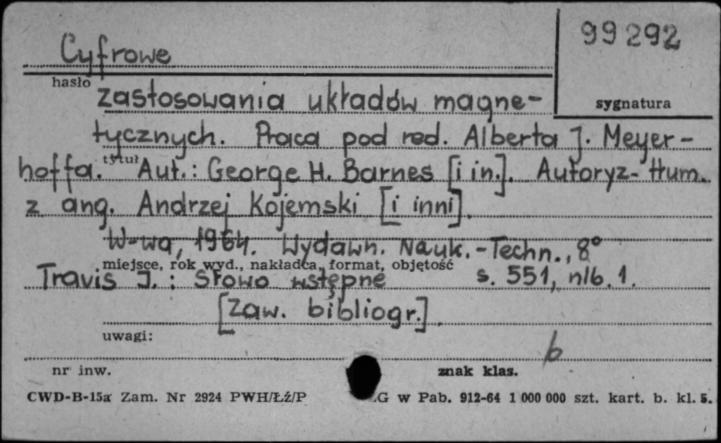 99292
Cyfrowe
hasło
sygnatura
zastosowania układów magne-
tycznych. Praca pod red. Alberta J. Meyer-
hoffa. Aut.: George H. Barnes [i in.]. Autoryz. tłum.
tytuł
z ang. Andrzej Kojemski [i inni].
W-wa, 1964. Wydawn. Nauk.-Techn., 8°
miejsce, rok wyd., nakładca, format, objętość
Travis J.: Słowo wstępne s. 551, nlb. 1.
[Zaw. bibliogr.]
uwagi:
b
nr inw. znak klas.
CWD-B-15a Zam. Nr 2924 PWH/Łź/P G w Pab. 912-64 1 000 000 szt. kart. b. kl. 5.